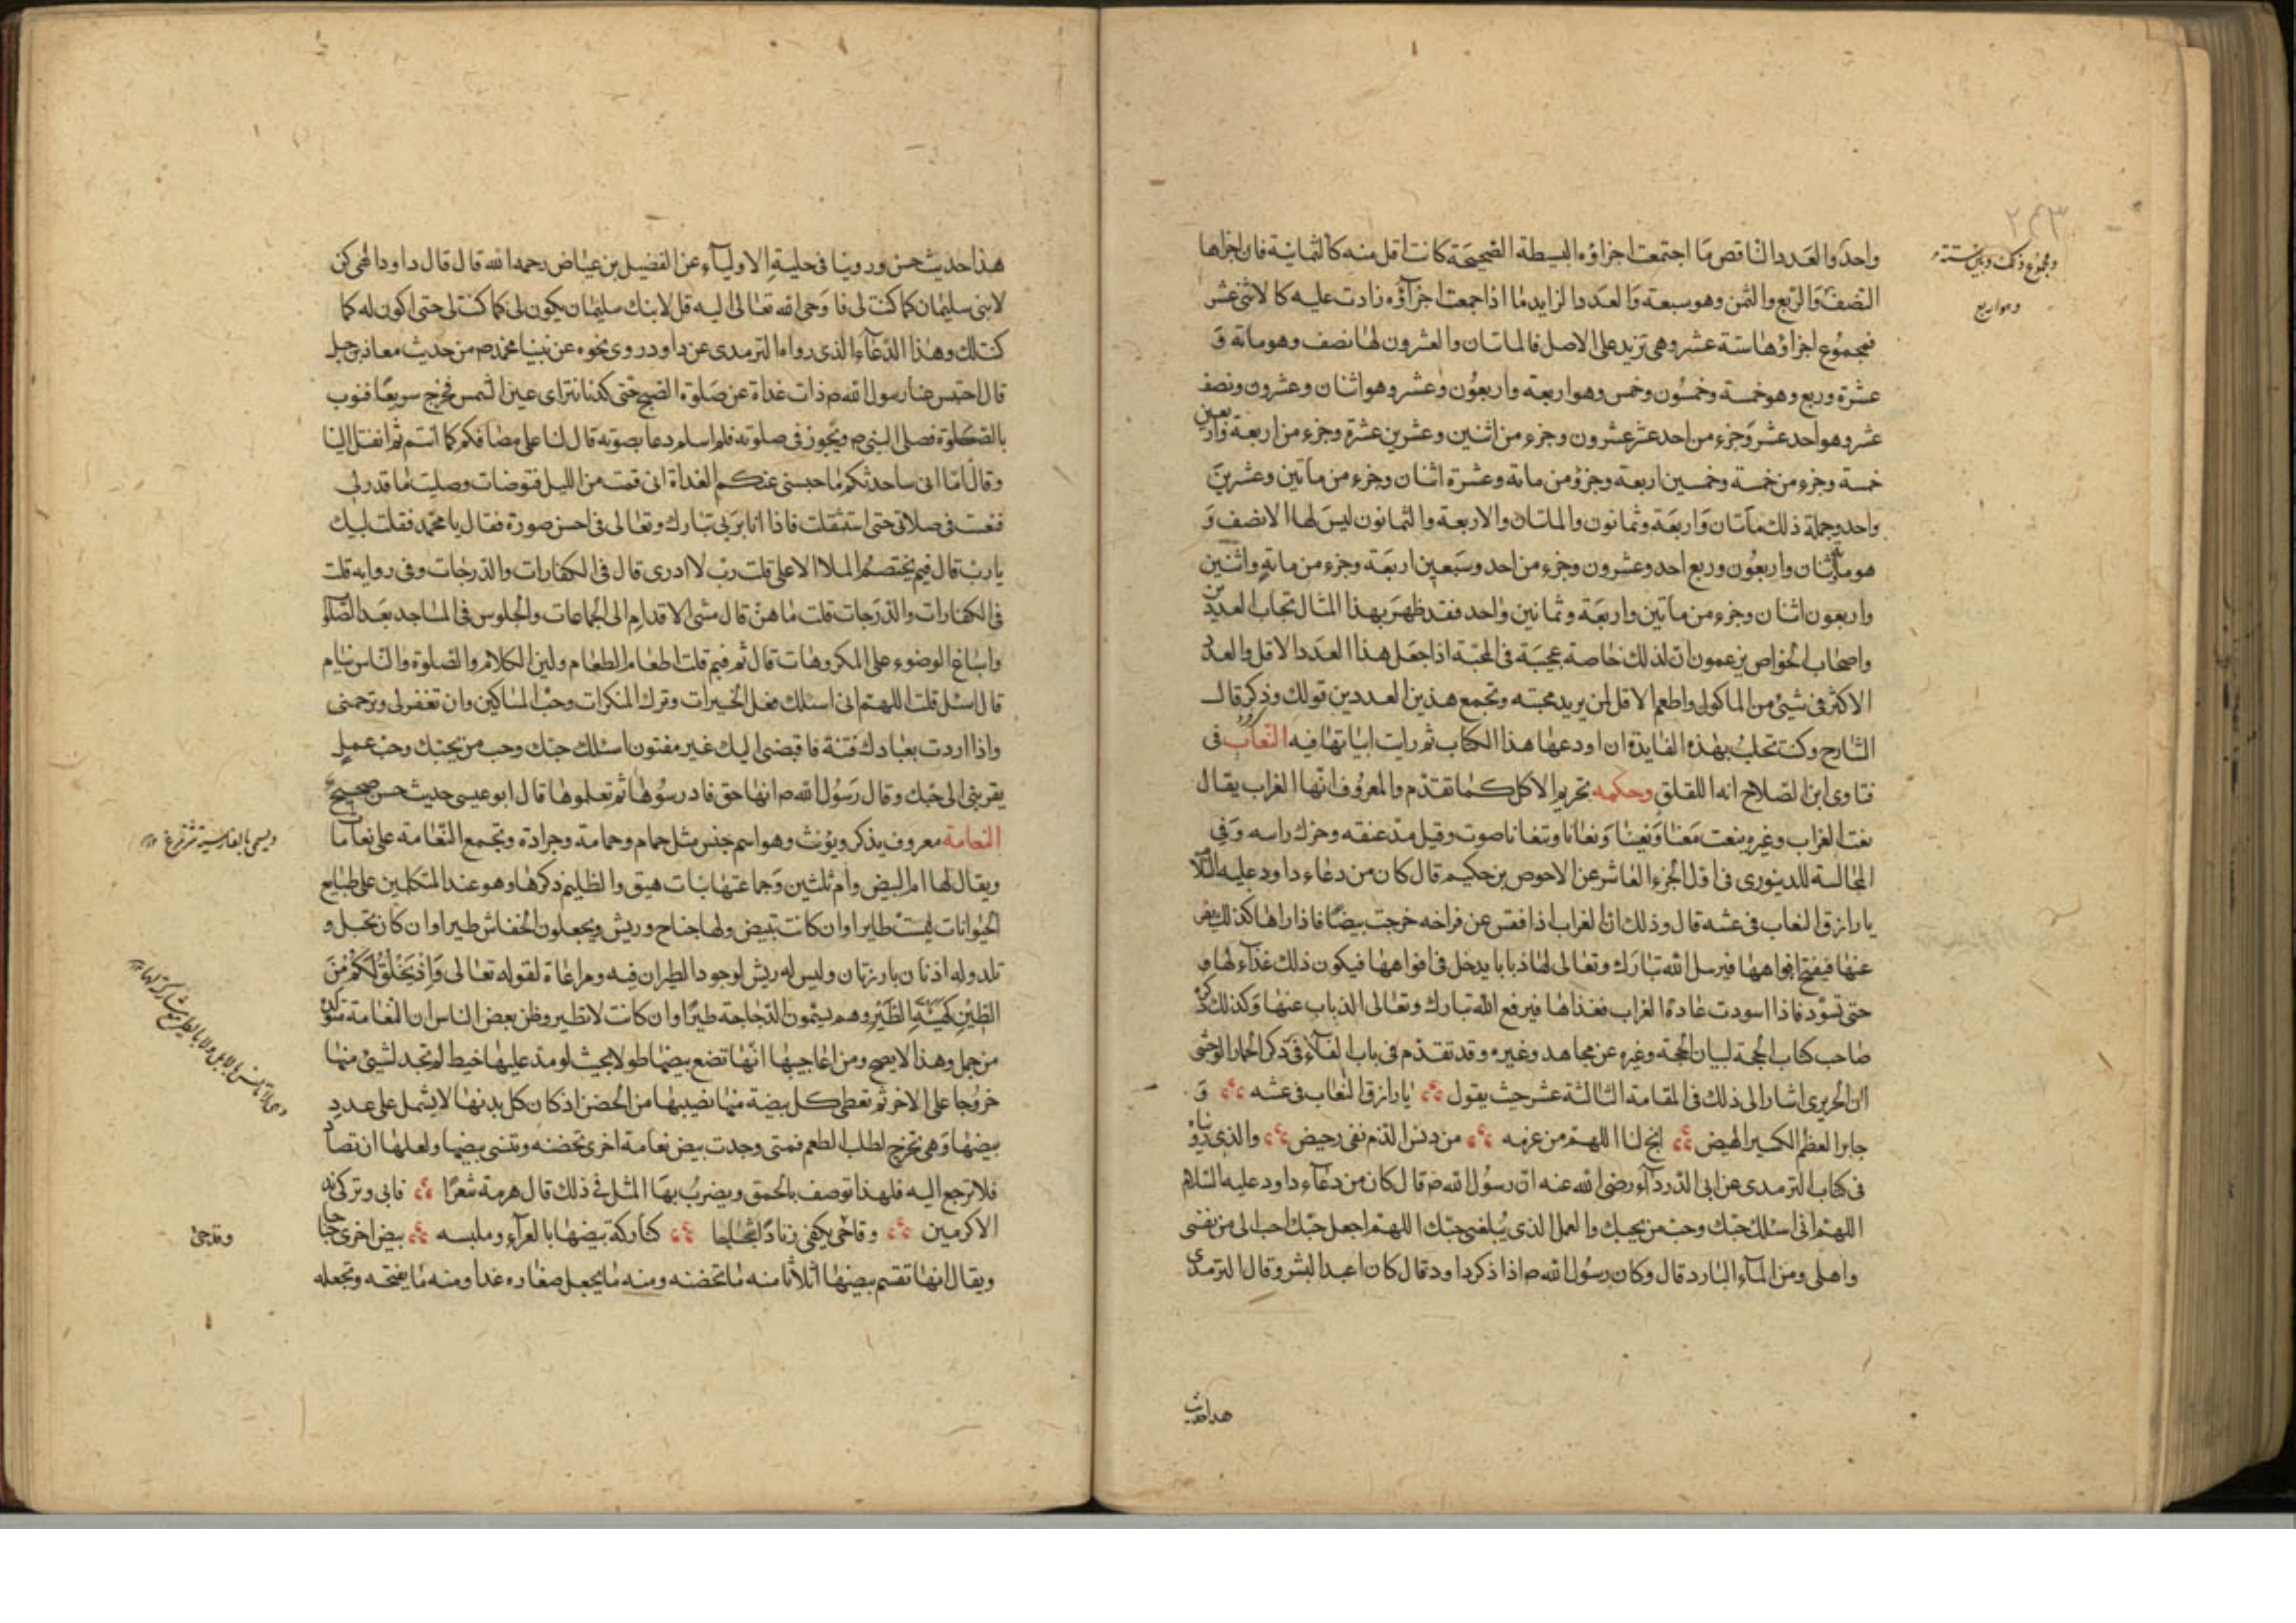 ٢٤٣
واحد والعدد الناقص ما اجتمعت اجزاؤه البسيطة الصحيحة كانت اقل منه كالثمانية فان اجزاها
ومجموع ذلك
النصف والربع والثمن وهو سبعة والعدد الزايد ما اذا جمعت اجزآؤه زادت عليه كالاثنى عشر
فمجموع اجزاؤها ستة عشر وهى تزيد على الاصل فالماتان والعشرون لها نصف وهو ماتة وَ
عشرة وربع وهو خمسة وخمسون وخمس وهو اربعة واربعون وعشر وهو اثنان وعشرون ونصف
عشر وهو احد عشر وجزء من احد عشر عشرون وجزء من اثنين وعشرين عشرة وجزء من اربعة واربعين
خمسة وجزء من خمسة وخمسين اربعة وجزؤ من ماتة وعشرة اثنان وجزء من مأتين وعشرين
واحد وجملة ذلك مأتان واربعة وثمانون والماتان والاربعة والثمانون ليس لها الا نصف وَ
هو ماتة اثنان واربعون وربع احد وسبعون وجزء من احد وسبعين اربعة وجزء من ماتة واثنين
واربعون اثنان وجزء من مأتين واربعة وثمانين واحد فقد ظهر بهذا المثال تحاب العددين
واصحاب الخواص يزعمون ان لذلك خاصة عجيبة فى المحبة اذا جعل هذا العدد الاقل والعدد
الاكثر فى شيئ من الماكول واطعم الاقل لمن يريد محبته وتجمع هذين العددين قولك وذكر قال
الشارح وكنت بهذه الفايدة ان اودعها هذا الكتاب ثم رايت اثباتها فيه النعاب فى
فتاوى ابن الصلاح انه اللقلق وحكمه تحريم الاكل كما تقدم والمعروف انها الغراب يقال
نعب الغراب وغيره ينعب نعبا ونعيبا ونعابا وتنعابا صوت وقيل مد عنقه وحرك راسه وَفى
المجالسة للدينورى فى اول الجزء العاشر عن الاحوص بن حكيم قال كان من دعاء داود عليه السلا
يا رازق النعاب فى عشه قال وذلك ان الغراب اذا فقس عن فراخه خرجت بيضا فاذا راها كذلك نفر
عنها فيفتح افواهها فيرسل الله تبارك وتعالى لها ذبابا يدخل فى افواهها فيكون ذلك غذاء لها
حتى تسوّد فاذا اسودت عاد الغراب فغذاها فيرفع الله تبارك وتعالى الذباب عنها وكذلك ذكره
صاحب كتاب الحجة لبيان الحجة وغيره عن مجاهد وغيره وقد تقدم فى باب الفآء فى ذكر الحمار الوحشى
ان الحريرى اشار الى ذلك فى المقامة الثالثة عشر حيث يقول يا رازق النعاب فى عشه وَ
جابر العظم الكسير المهيض اتح لنا اللهم من عرضه من دنس الذم نقى رحيض والذى رويناه
فى كتاب الترمدى عن ابى الدردآء رضى الله عنه ان رسول الله ص قال كان من دعآء داود عليه السلام
اللهم انى اسئلك حبك وحب من يحبك والعمل الذى يبلغنى حبك اللهم اجعل حبك احب الى من نفسى
واهلى ومن المآء البارد قال وكان رسول الله ص اذا ذكر داود قال كان اعبد البشر وقال الترمدى
هذا حديث
هذا حديث حسن وروينا فى حلية الاوليآء عن الفضيل بن عياض رحمه الله قال قال داود الهى كن
لابنى سليمان كما كنت لى فاوحى الله تعالى اليه قل لابنك سليمان يكون لى كما كنت لى حتى اكون له كما
كنت لك وهذا الدعآء الذى رواه الترمدى عن داود روى نحوه عن نبينا محمد ص من حديث معاذ بن جبل
قال احتبس عنا رسول الله ص ذات غداة عن صلوة الصبح حتى كدنا نتراى عين الشمس فخرج سريعا فثوب
بالصلوة فصلى النبى ص وتجوز فى صلوته فلما سلم دعا بصوته قال لنا على مصافكم كما انتم ثم انفتل الينا
وقال اما انى ساحدثكم ما حبسنى عنكم الغداة انى قمت من الليل فتوضات وصليت ما قدر لى
فنعست فى صلاتى حتى استثقلت فاذا انا بربى تبارك وتعالى فى احسن صورة فقال يا محمد فقلت لبيك
يا رب قال فيم يختصم الملاء الاعلى قلت رب لا ادرى قال فى الكفارات والدرجات وفى رواية قلت
فى الكفارات والدرجات قلت ما هن قال مشى الاقدام الى الجماعات والجلوس فى المساجد بعد الصلوة
واسباغ الوضوء على المكروهات قال ثم فيم قلت اطعام الطعام ولين الكلام والصلوة والناس نيام
قال سل قلت اللهم انى اسئلك فعل الخيرات وترك المنكرات وحب المساكين وان تغفر لى وترحمنى
واذا اردت بعبادك فتنة فاقبضنى اليك غير مفتون اسئلك حبك وحب من يحبك وحب عمل
يقربنى الى حبك وقال رسول الله ص انها حق فادرسوها ثم تعلموها قال ابو عيسى حديث حسن صحيح
النعامة معروف يذكر ويؤنث وهو اسم جنس مثل حمام وحمامة وجرادة وتجمع النعامة على نعامات
ويسمى بالفارسية شترمرغ
ويقال لها ام البيض وام ثلثين وجماعتها بنات هيق والظليم ذكرها وهو عند المتكلمين على طبايع
الحيوانات ليست طايرا وان كانت تبيض ولها جناح وريش ويجعلون الخفاش طيرا وان كان يحبل و
تلد وله اذنان بارزتان وليس له ريش لوجود الطيران فيه ومراعاة لقوله تعالى وَاِذْ يَخْلُقُ لَكُمْ مِنَ
الطين كهيئة الطير وهم يسمون الدجاجة طيرا وان كانت لا تطير وظن بعض الناس ان النعامة متولدة
من جمل وهذا لا يصح ومن اعاجيبها انها تضع بيضها طولا بحيث لو مد عليها خيط لم تجد لشيئ منها
خروجا على الاخر ثم تعطى كل بيضة منها نصيبها من الحضن اذ كان كل بدنها لا يشمل على عدد
بيضها وهى تخرج لطلب الطعم فمتى وجدت بيض نعامة اخرى تحضنه وتنسى بيضها ولعلها ان تصاد
فلا ترجع اليه فلهذا توصف بالحمق ويضرب بها المثل فى ذلك قال هرمة شعرا فانى وتركى ندى
الاكرمين وقدحى بكفى زنادا شحاحا كتاركة بيضها بالعرآء وملبسه بيض اخرى جناحا
وقدحى
ويقال انها تقسم بيضها اثلاثا منه ما تحضنه ومنه ما يجعل صفاره غدا ومنه ما يفتحه وتجعله